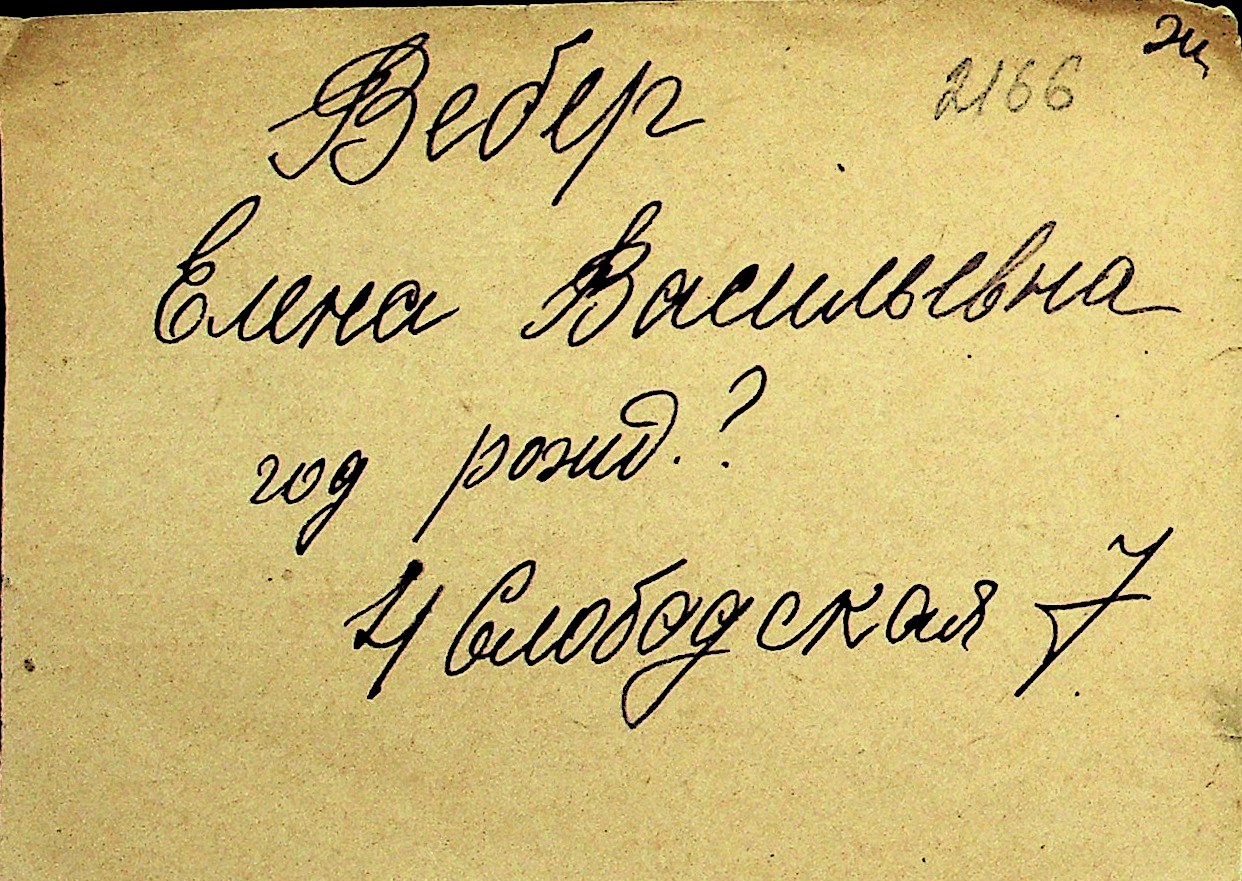 2166
Вебер
Елена Васильевна
год рожд.?
4 Слободская 7